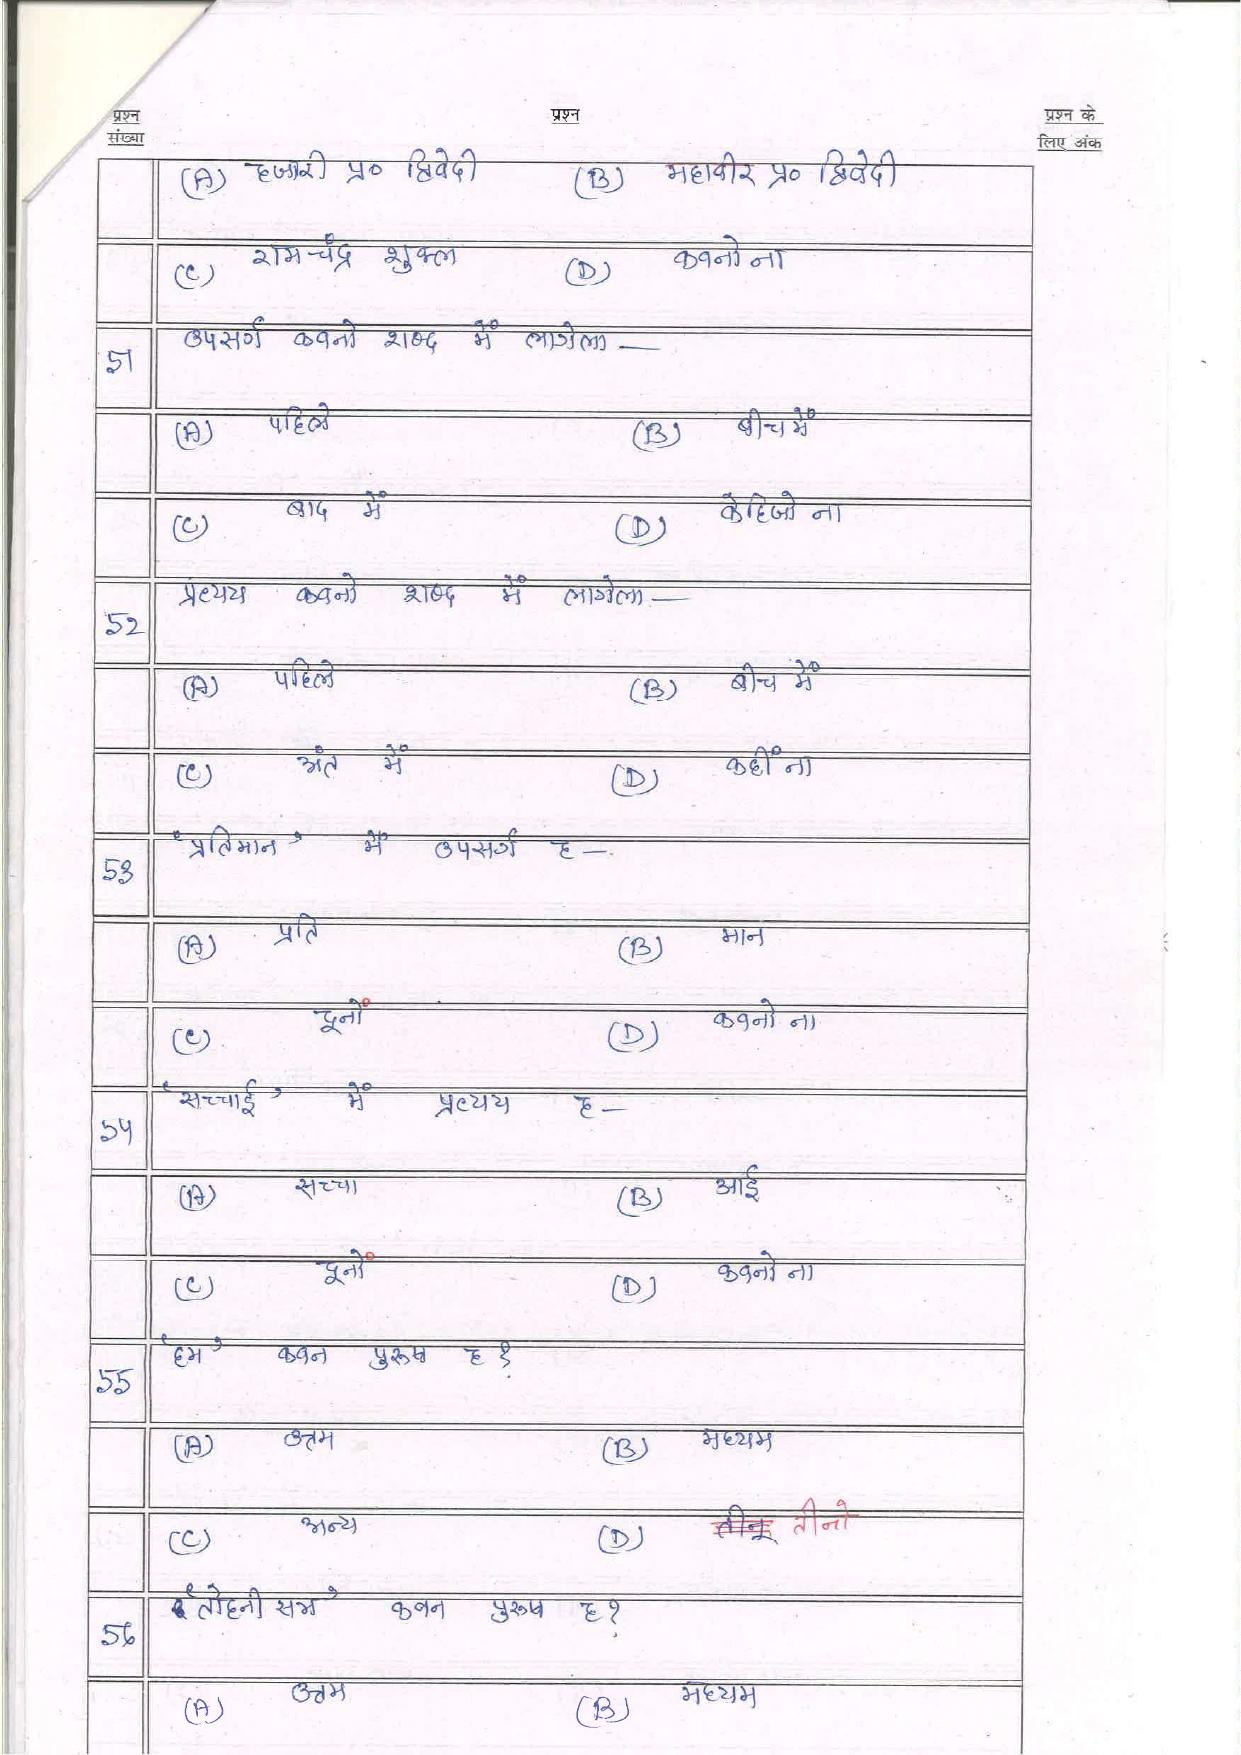 प्रश्न प्रश्न प्रश्न के
संख्या लिए अंक
(A) हजारी प्र० द्विवेदी (B) महावीर प्र० द्विवेदी
(C) रामचंद्र शुक्ल (D) कवनो ना
51 उपसर्ग कवनो शब्द में लागेला —
(A) पहिले (B) बीच में
(C) बाद में (D) केहिजो ना
52 प्रत्यय कवनो शब्द में लागेला —
(A) पहिले (B) बीच में
(C) अंत में (D) कहीं ना
53 'प्रतिमान' में उपसर्ग ह —
(A) प्रति (B) मान
(C) दूनों (D) कवनो ना
54 'सच्चाई' में प्रत्यय ह —
(A) सच्चा (B) आई
(C) दूनों (D) कवनो ना
55 'हम' कवन पुरूष ह ?
(A) उत्तम (B) मध्यम
(C) अन्य (D) तीनू तीनों
56 'तोहनी सभ' कवन पुरूष ह ?
(A) उत्तम (B) मध्यम